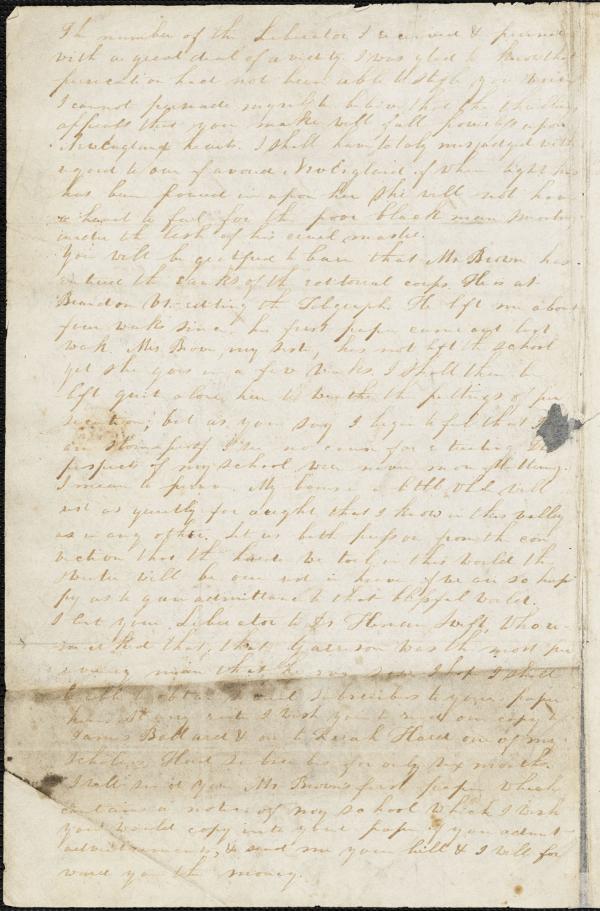 The number of the Liberator I received & perused
with a great deal of avidity. I was glad to know that
persecution had not been able to stifle your voice
I cannot persuade myself to believe that the thrilling
appeals that you make will fall powerless upon
New England hearts. I shall have totaly misjudged with
regard to our favoured New England if when light
has been poured in upon her she will not have
a heart to feel for the poor black man
under the lash of his cruel master.
You will be gratified to learn that Mr Brown has
entered the ranks of the editorial corps. He is at
Brandon Vt. editing the Telegraph. He left me about
four weeks since. his first paper came out last
week. Mrs Brown, my sister, has not left the school
yet she goes in a few weeks. I shall then be
left quite alone, here to weather the peltings of per
secution; but as you say I hope
no cause for The
prospects of my school were never more
I mean to My house
as quietly for aught that I know in this valley
as in any other. Let us both press on from the con
viction that the harder we toil in this world the
sweeter will be our rest in heaven if we are so hap
py as to gain admittance to that blissful world.
I lent your Liberator to Dr Heman Swift, who re-
marked that, that Garrison was the most per
severing man that he ever saw I hope I shall
be able to obtain subscribers to your paper
here. At any rate I wish you to send one copy to
James Ballard & one to Hurd one of my
Scholars. Hurd subscribes for only six months.
I shall send you Mr Brown's first paper which
contains a notice of my school which I wish
you would copy into your paper if you admit
advertisements, & send me your bill & I will for
ward you the money.